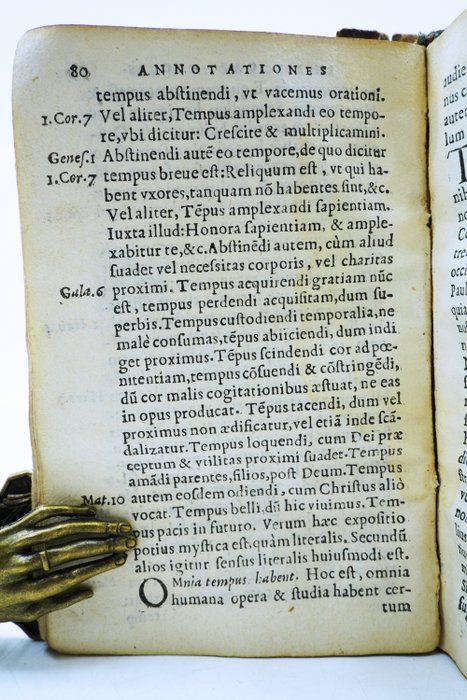 80 ANNOTATIONES
tempus abstinendi, vt vacemus orationi.
1.Cor.7 Vel aliter, Tempus amplexandi eo tempo-
re, vbi dicitur: Crescite & multiplicamini.
Genes.1 Abstinendi autē eo tempore, de quo dicitur
1.Cor.7 tempus breue est: Reliquum est, vt qui ha-
bent vxores, tanquam nō habentes sint, &c.
Vel aliter, Tēpus amplexandi sapientiam.
Iuxta illud: Honora sapientiam, & ample-
xabitur te, &c. Abstinēdi autem, cùm aliud
suadet vel necessitas corporis, vel charitas
Gala.6 proximi. Tempus acquirendi gratiam nūc
est, tempus perdendi acquisitam, dum su-
perbis. Tempus custodiendi temporalia, ne
malè consumas, tēpus abiiciendi, dum indi
get proximus. Tēpus scindendi cor ad pœ-
nitentiam, tempus cōsuendi & cōstringēdi,
dū cor malis cogitationibus æstuat, ne eas
in opus producat. Tēpus tacendi, dum vel
proximus non ædificatur, vel etiā inde scā-
dalizatur. Tempus loquendi, cum Dei præ
ceptum & vtilitas proximi suadet. Tempus
amādi parentes, filios, post Deum. Tempus
Mat.10 autem eosdem odiendi, cum Christus aliò
vocat. Tempus belli, dū hic viuimus. Tem-
pus pacis in futuro. Verum hæc expositio
potius mystica est, quàm literalis. Secundū
alios igitur sensus literalis huiusmodi est.
Omnia tempus habent. Hoc est, omnia
humana opera & studia habent cer-
tum